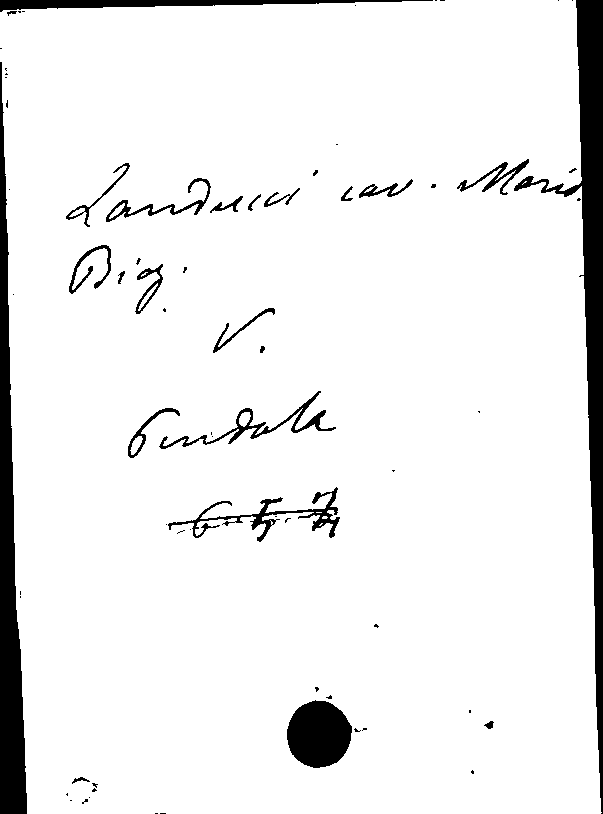 Landucci cav. Mario
Biog.
V.
Pendola